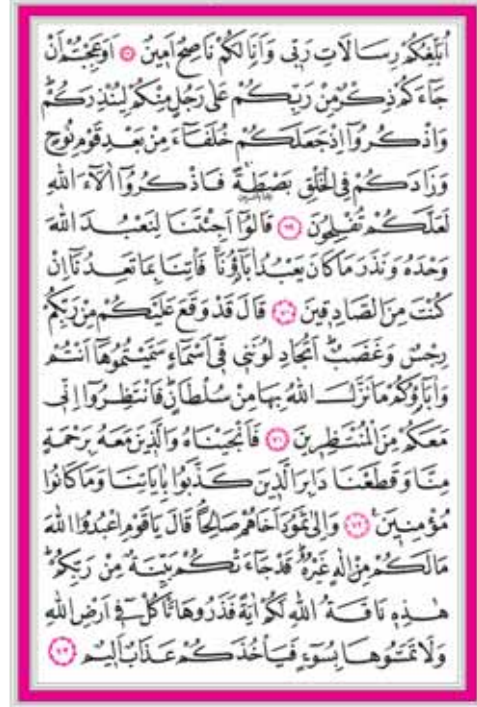 اُبَلِّغُكُمْ رِسَالَاتِ رَبّ۪ي وَاَنَا۬ لَكُمْ نَاصِحٌ اَم۪ينٌ ﴿٦٨﴾ اَوَعَجِبْتُمْ اَنْ
جَٓاءَكُمْ ذِكْرٌ مِنْ رَبِّكُمْ عَلٰى رَجُلٍ مِنْكُمْ لِيُنْذِرَكُمْۜ
وَاذْكُرُٓوا اِذْ جَعَلَكُمْ خُلَفَٓاءَ مِنْ بَعْدِ قَوْمِ نُوحٍ
وَزَادَكُمْ فِي الْخَلْقِ بَصْۣطَةًۚ فَاذْكُرُٓوا اٰلَٓاءَ اللّٰهِ
لَعَلَّكُمْ تُفْلِحُونَ ﴿٦٩﴾ قَالُٓوا اَجِئْتَنَا لِنَعْبُدَ اللّٰهَ
وَحْدَهُ وَنَذَرَ مَا كَانَ يَعْبُدُ اٰبَٓاؤُ۬نَاۚ فَأْتِنَا بِمَا تَعِدُنَٓا اِنْ
كُنْتَ مِنَ الصَّادِق۪ينَ ﴿٧٠﴾ قَالَ قَدْ وَقَعَ عَلَيْكُمْ مِنْ رَبِّكُمْ
رِجْسٌ وَغَضَبٌۜ اَتُجَادِلُونَن۪ي ف۪ٓي اَسْمَٓاءٍ سَمَّيْتُمُوهَٓا اَنْتُمْ
وَاٰبَٓاؤُ۬كُمْ مَا نَزَّلَ اللّٰهُ بِهَا مِنْ سُلْطَانٍۜ فَانْتَظِرُٓوا اِنّ۪ي
مَعَكُمْ مِنَ الْمُنْتَظِر۪ينَ ﴿٧١﴾ فَاَنْجَيْنَاهُ وَالَّذ۪ينَ مَعَهُ بِرَحْمَةٍ
مِنَّا وَقَطَعْنَا دَابِرَ الَّذ۪ينَ كَذَّبُوا بِاٰيَاتِنَا وَمَا كَانُوا
مُؤْمِن۪ينَ۟ ﴿٧٢﴾ وَاِلٰى ثَمُودَ اَخَاهُمْ صَالِحًاۢ قَالَ يَا قَوْمِ اعْبُدُوا اللّٰهَ
مَا لَكُمْ مِنْ اِلٰهٍ غَيْرُهُۜ قَدْ جَٓاءَتْكُمْ بَيِّنَةٌ مِنْ رَبِّكُمْۜ
هٰذِه۪ نَاقَةُ اللّٰهِ لَكُمْ اٰيَةً فَذَرُوهَا تَأْكُلْ ف۪ٓي اَرْضِ اللّٰهِ
وَلَا تَمَسُّوهَا بِسُٓوءٍ فَيَأْخُذَكُمْ عَذَابٌ اَل۪يمٌ ﴿٧٣﴾